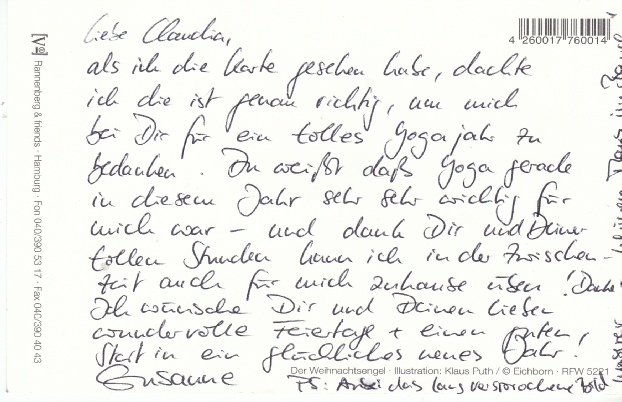 Liebe Claudia,
als ich die Karte gesehen habe, dachte
ich die ist genau richtig, um mich
bei Dir für ein tolles Yogajahr zu
bedanken. Du weißt daß Yoga gerade
in diesem Jahr sehr sehr wichtig für
mich war – und dank Dir und Deiner
tollen Stunden kann ich in der Zwischen-
zeit auch für mich zuhause üben! Danke!
Ich wünsche Dir und Deinen Lieben
wundervolle Feiertage + einen guten,
Start in ein glückliches neues Jahr.
Susanne
PS: Anbei das lang versprochene Bild
4 260017 760014
[V©] Rannenberg & friends · Hamburg · Fon 040/390 53 17 · Fax 040/390 40 43
Der Weihnachtsengel · Illustration: Klaus Puth / © Eichborn · RFW 5221